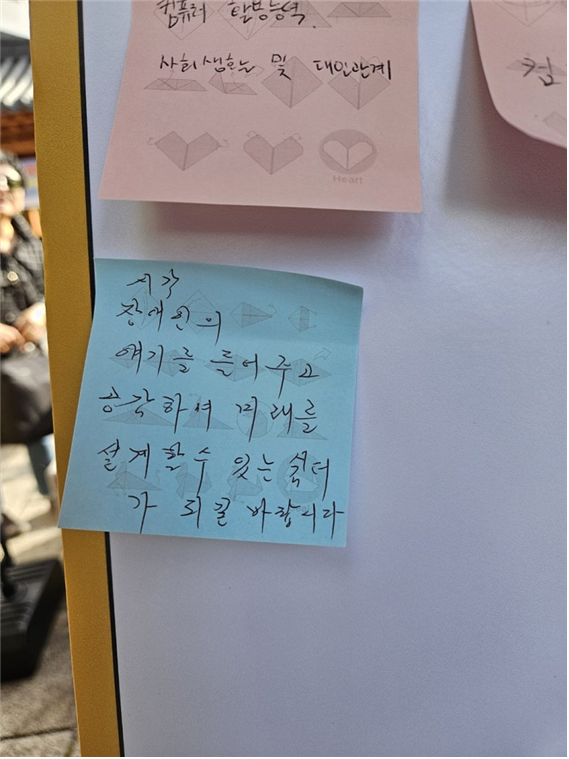 컴퓨터 활용능력.
사회생활 및 대인관계
Heart
컴
시각
장애인의
얘기를 들어주고
공감하며 미래를
설계할수 있는 쉼터
가 되길 바랍니다